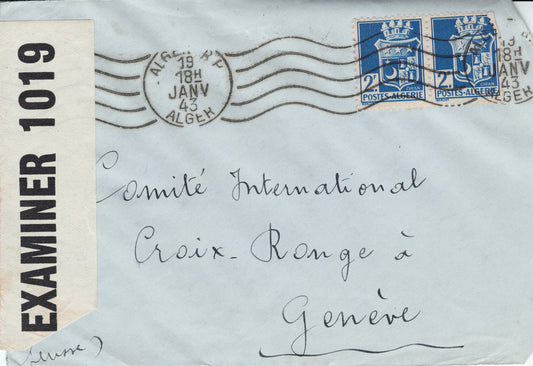 EXAMINER 1019
ALGER R.P.
19
18H
JANV
43
ALGER
2F
POSTES-ALGERIE
2F
POSTES-ALGERIE
19
18H
JANV
43
ALGER
Comité International
Croix-Rouge à
Genève
(Suisse)